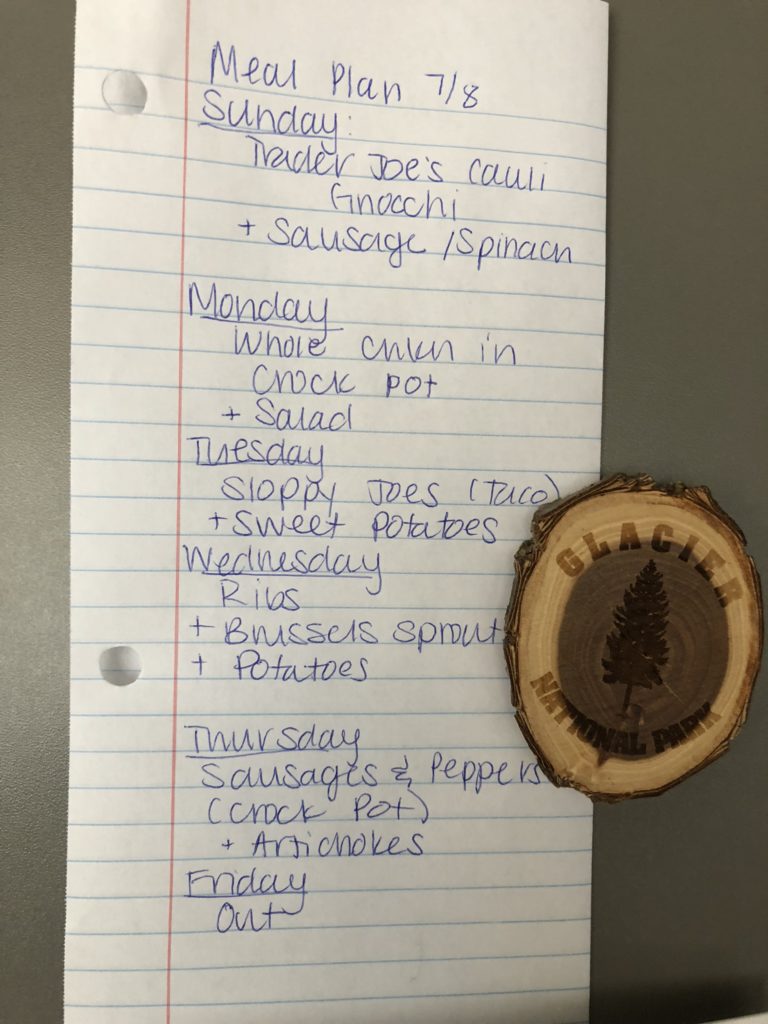 Meal Plan 7/8
Sunday:
Trader Joe's Cauli
Gnocchi
+ Sausage / Spinach
Monday
Whole chkn in
Crock pot
+ Salad
Tuesday
Sloppy Joes (Taco)
+ Sweet Potatoes
Wednesday
Ribs
+ Brussels sprout
+ Potatoes
Thursday
Sausages & Peppers
(Crock Pot)
+ Artichokes
Friday
Out
GLACIER
NATIONAL PARK